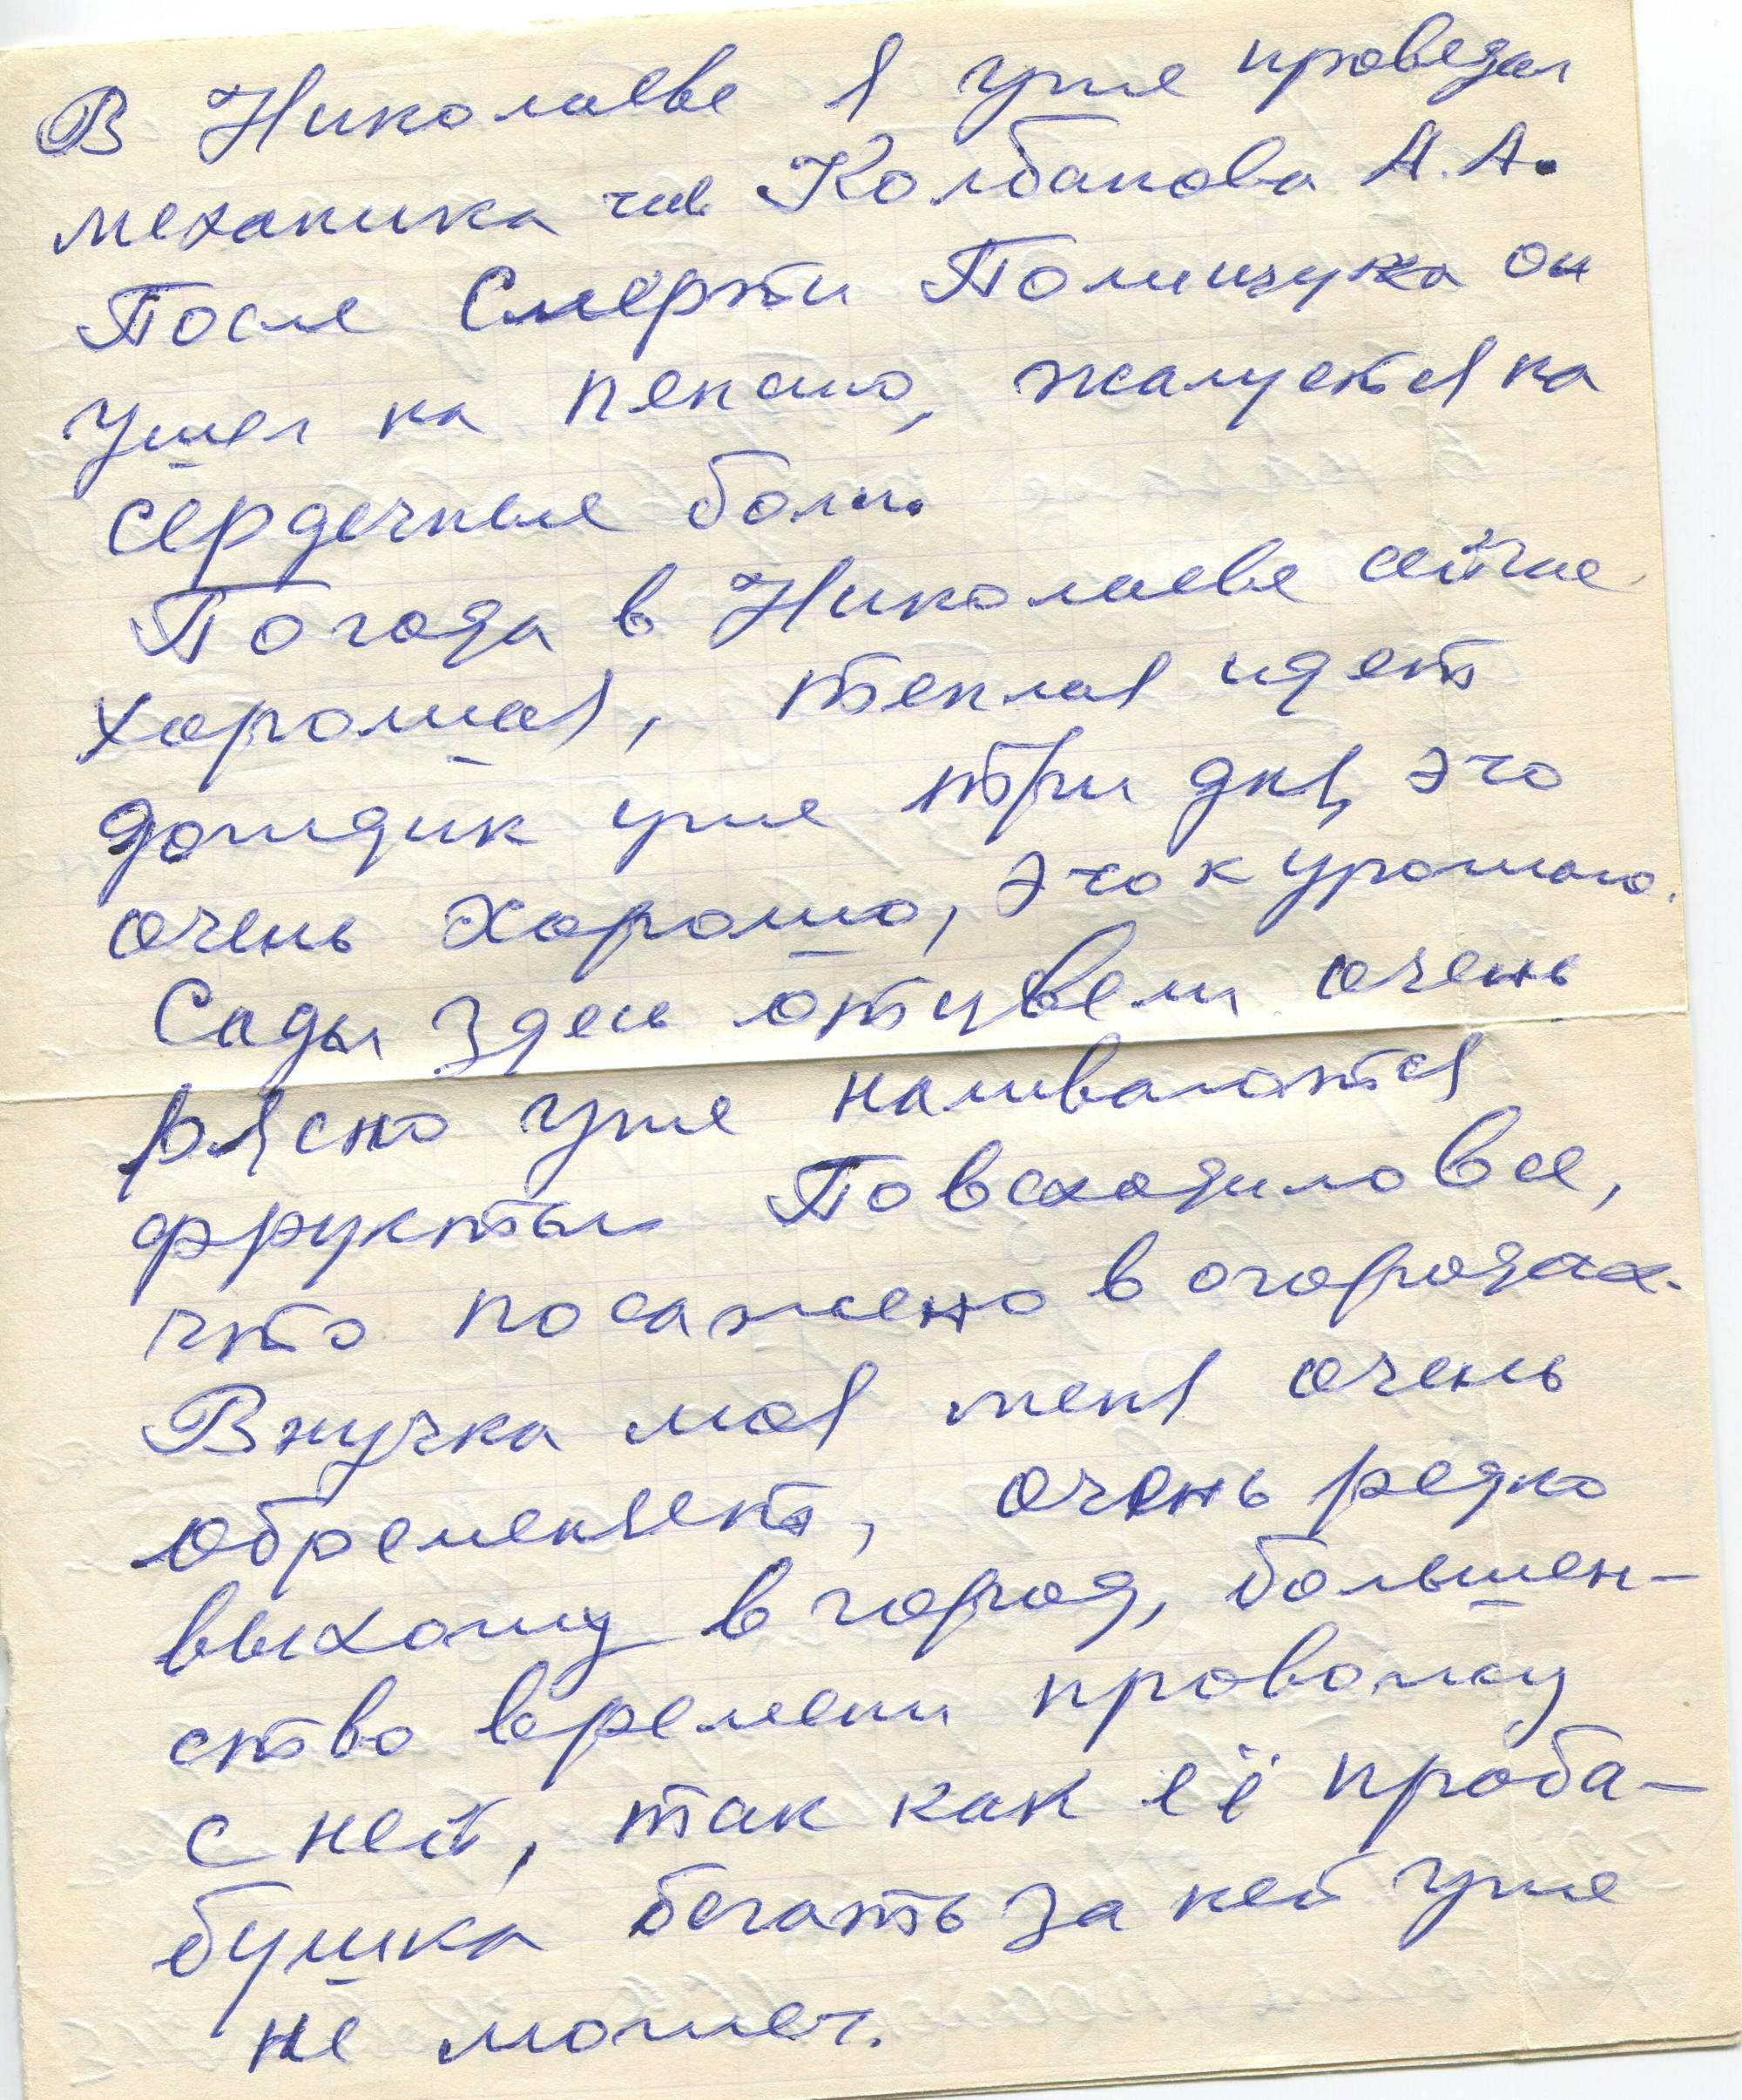 В Николаеве я уже проведал
механика Колбанова А.А.
После Смерти Полищука он
ушел на пенсию, жалуется на
сердечные боли.
Погода в Николаеве сейчас
хорошая, теплая идет
дождик уже три дня, это
очень хорошо, это к урожаю.
Сады здесь отцвели очень
рясно уже наливаются
фрукты Повсходило все,
что посажено в огородах.
Внучка моя меня очень
обременяет, очень редко
выхожу в город, большен-
ство времени провожу
с ней, так как её праба-
бушка бегать за ней уже
не может.